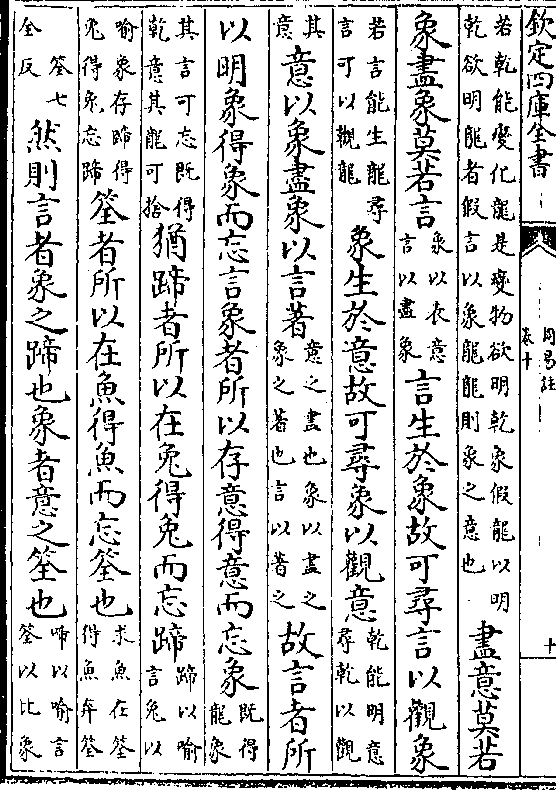 欽定四庫全書
周易註
卷十
十
若乾能變化龍是變物欲明乾象假龍以明
乾欲明龍者假言以象龍龍則象之意也
盡意莫若
象盡象莫若言
象以衣意
言以盡象
言生於象故可尋言以觀象
若言能生龍尋
言可以觀龍
象生於意故可尋象以觀意
乾能明意
尋乾以觀
其
意
意以象盡象以言著
意之盡也象以盡之
象之著也言以著之
故言者所
以明象得象而忘言象者所以存意得意而忘象
既得
龍象
其言可忘既得
乾意其龍可捨
猶蹄者所以在兔得兔而忘蹄
蹄以喻
言兔以
喻象存蹄得
兔得兔忘蹄
筌者所以在魚得魚而忘筌也
求魚在筌
得魚弃筌
筌七
全反
然則言者象之蹄也象者意之筌也
蹄以喻言
筌以比象